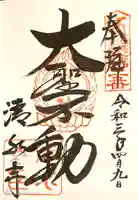 奉拝
令和三年四月九日
大聖不動
清水寺